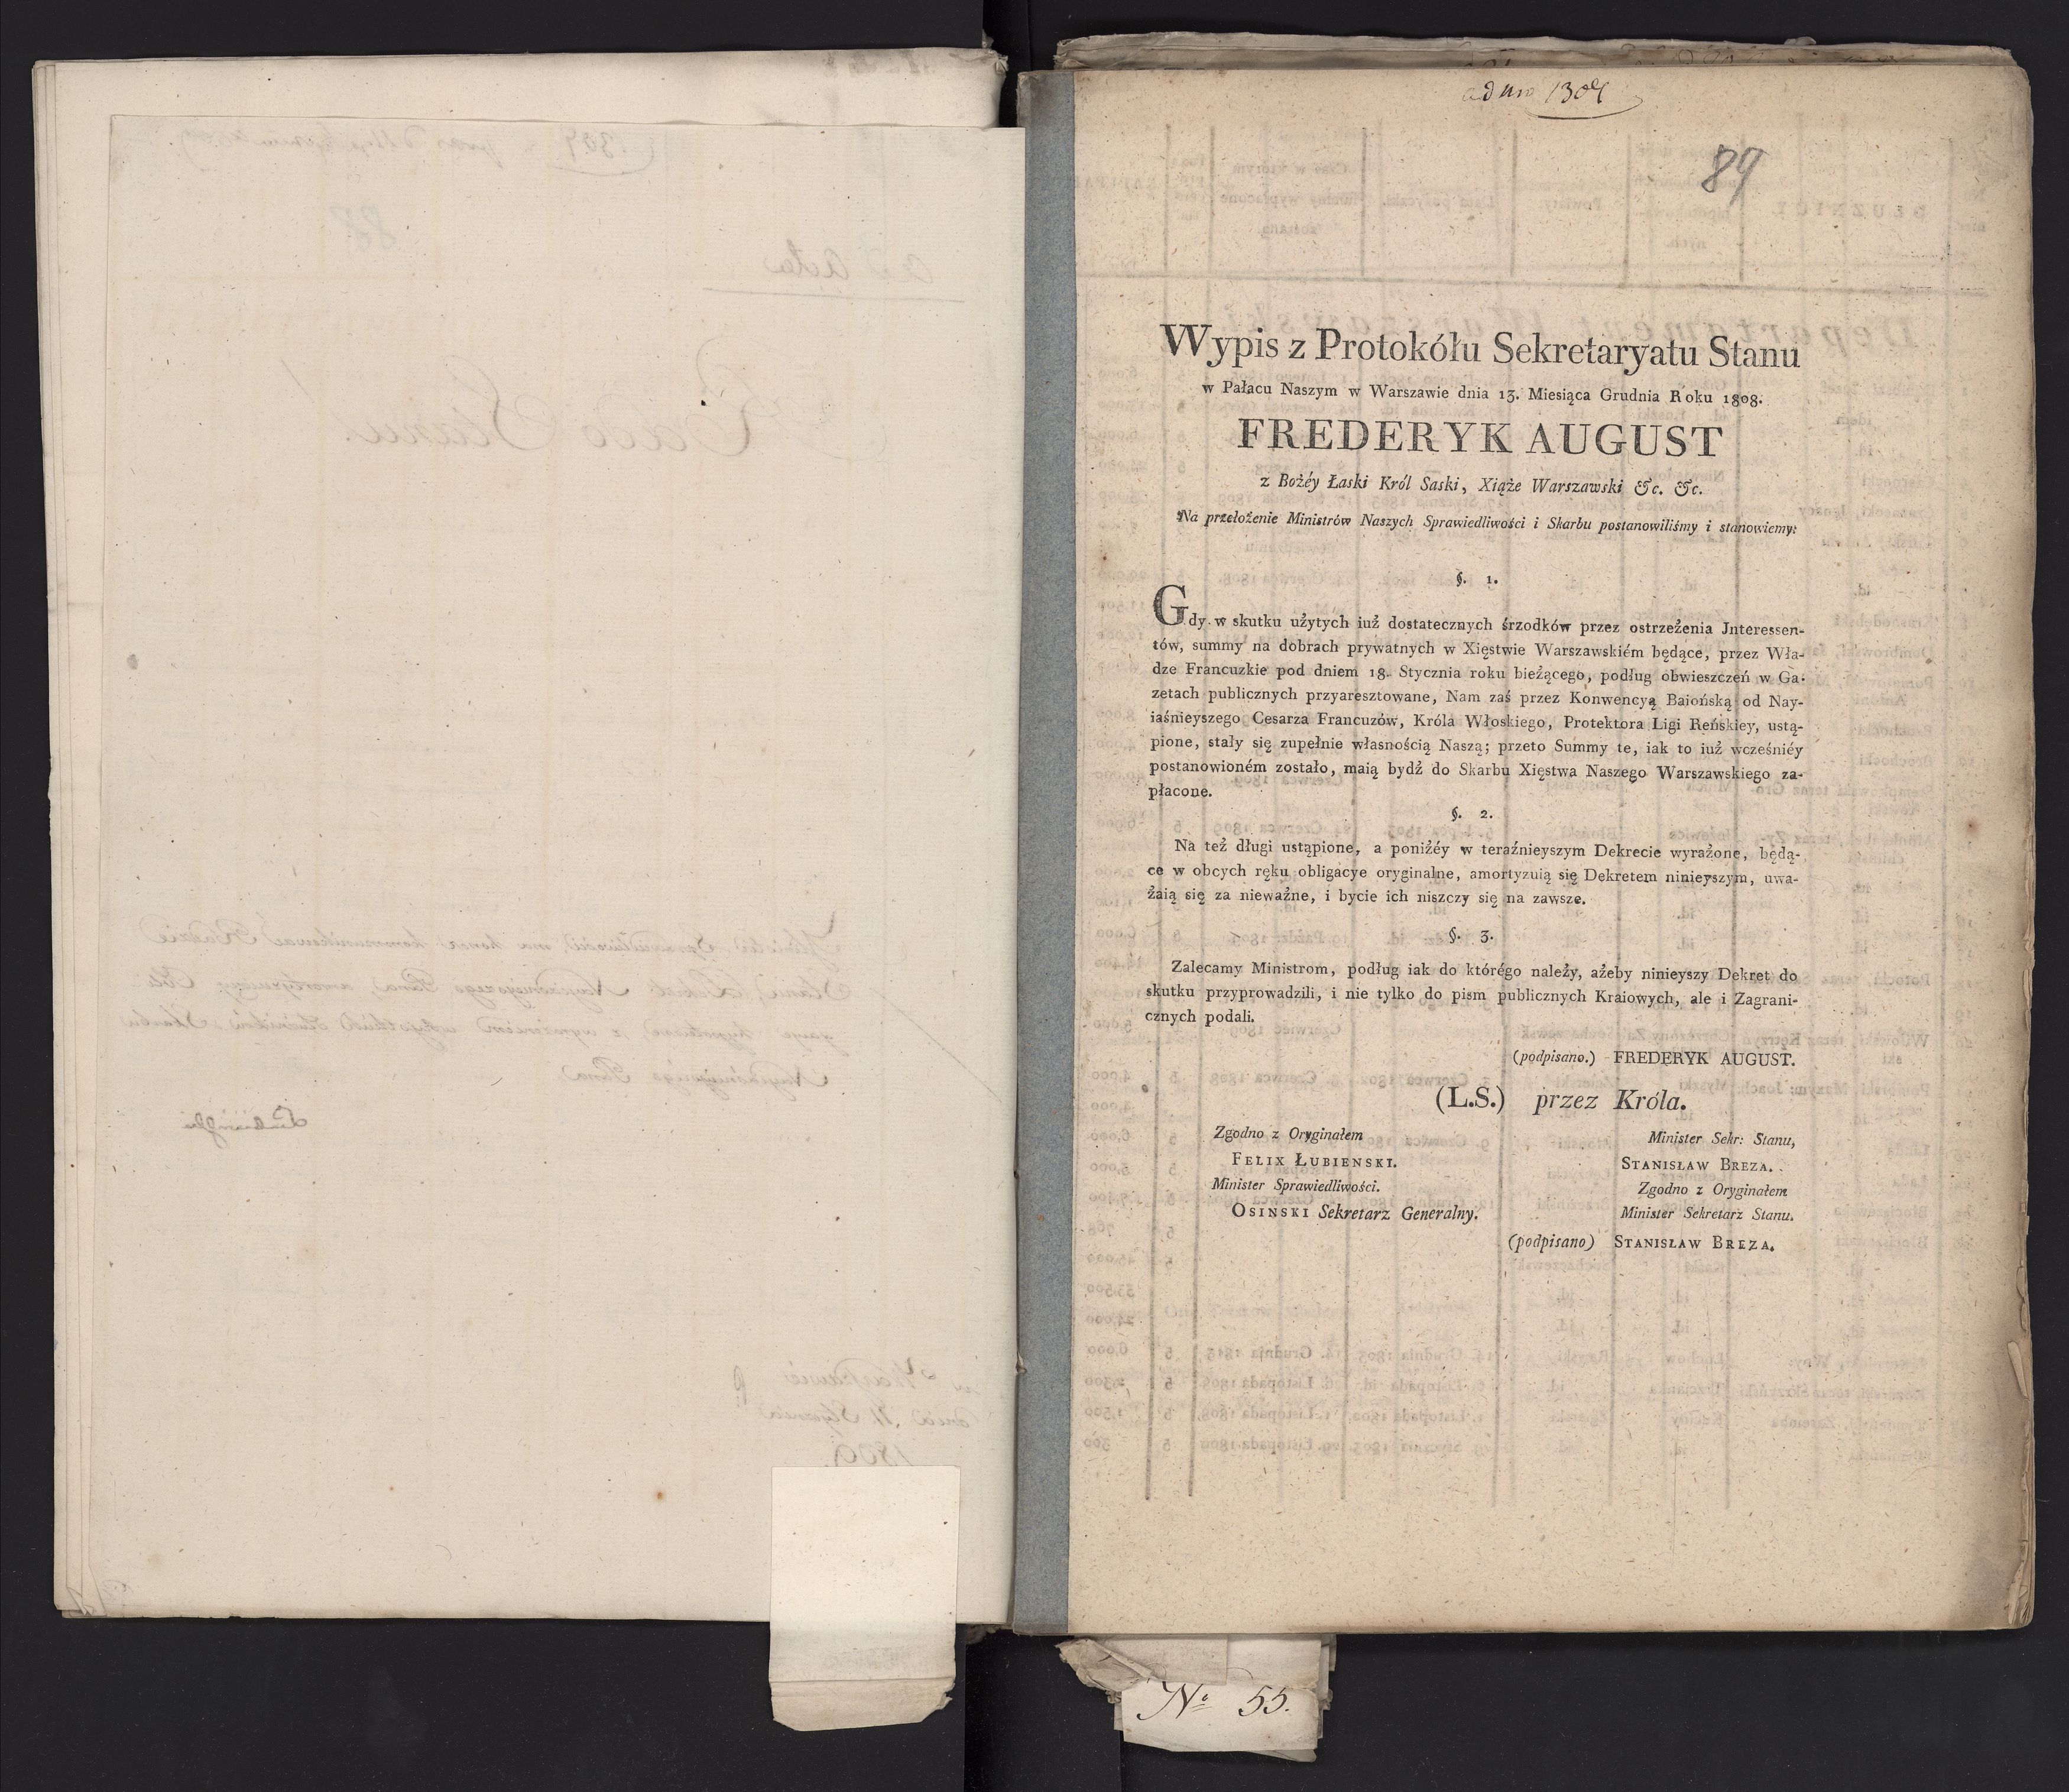 ad Nro 1307
89
Wypis z Protokółu Sekretaryatu Stanu
w Pałacu Naszym w Warszawie dnia 13. Miesiąca Grudnia Roku 1808.
FREDERYK AUGUST
z Bożéy Łaski Król Saski, Xiąże Warszawski &c. &c.
Na przełożenie Ministrów Naszych Sprawiedliwości i Skarbu postanowiliśmy i stanowiemy:
§. 1.
Gdy w skutku użytych iuż dostatecznych śrzodków przez ostrzeżenia Jnteressen-
tów, summy na dobrach prywatnych w Xięstwie Warszawskiém będące, przez Wła-
dze Francuzkie pod dniem 18. Stycznia roku bieżącego, podług obwieszczeń w Ga-
zetach publicznych przyaresztowane, Nam zaś przez Konwencyą Baiońską od Nay-
iaśnieyszego Cesarza Francuzów, Króla Włoskiego, Protektora Ligi Reńskiey, ustą-
pione, stały się zupełnie własnością Naszą; przeto Summy te, iak to iuż wcześniéy
postanowioném zostało, maią bydź do Skarbu Xięstwa Naszego Warszawskiego za-
płacone.
§. 2.
Na też długi ustąpione, a poniżéy w teraźnieyszym Dekrecie wyrażone, będą-
ce w obcych ręku obligacye oryginalne, amortyzuią się Dekretem ninieyszym, uwa-
żaią się za nieważne, i bycie ich niszczy się na zawsze.
§. 3.
Zalecamy Ministrom, podług iak do którégo należy, ażeby ninieyszy Dekret do
skutku przyprowadzili, i nie tylko do pism publicznych Kraiowych, ale i Zagrani-
cznych podali.
(podpisano.) FREDERYK AUGUST.
(L.S.) przez Króla.
Zgodno z Oryginałem
FELIX ŁUBIENSKI.
Minister Sprawiedliwości.
OSINSKI Sekretarz Generalny.
Minister Sekr: Stanu,
STANISŁAW BREZA.
Zgodno z Oryginałem
Minister Sekretarz Stanu.
(podpisano) STANISŁAW BREZA.
No 55.